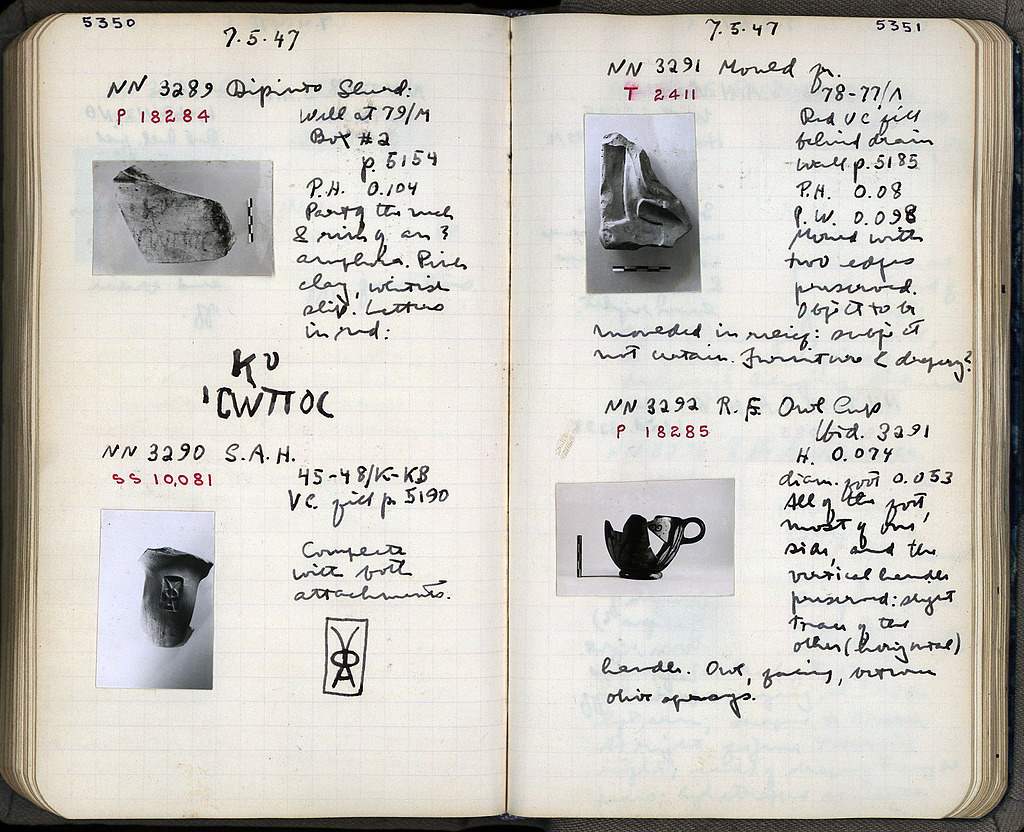 5350
7.5.47
NN 3289 Dipinto Sherd:
P 18284
Well at 79/M
Box #2
p. 5154
P.H. 0.104
Part of the neck
& rim of an
amphora. Pink
clay, whitish
slip. Letters
in red:
NN 3290 S.A.H.
SS 10,081
45-48/K-KB
VC. fill p. 5190
Complete
with both
attachments.
5351
7.5.47
NN 3291 Mould fr.
T 2411
78-77/Λ
Red VC fill
behind drain
wall p. 5185
P.H. 0.08
P.W. 0.098
Mould with
two edges
preserved.
Object to be
moulded in relief: subject
not certain. Furniture & drapery?
NN 3292 R.F. Owl Cup
P 18285
Ibid. 3291
H. 0.074
diam. foot 0.053
All of the foot,
most of one
side, and the
vertical handle
preserved: slight
trace of the
other (horizontal)
handle. Owl, facing, between
olive sprays.